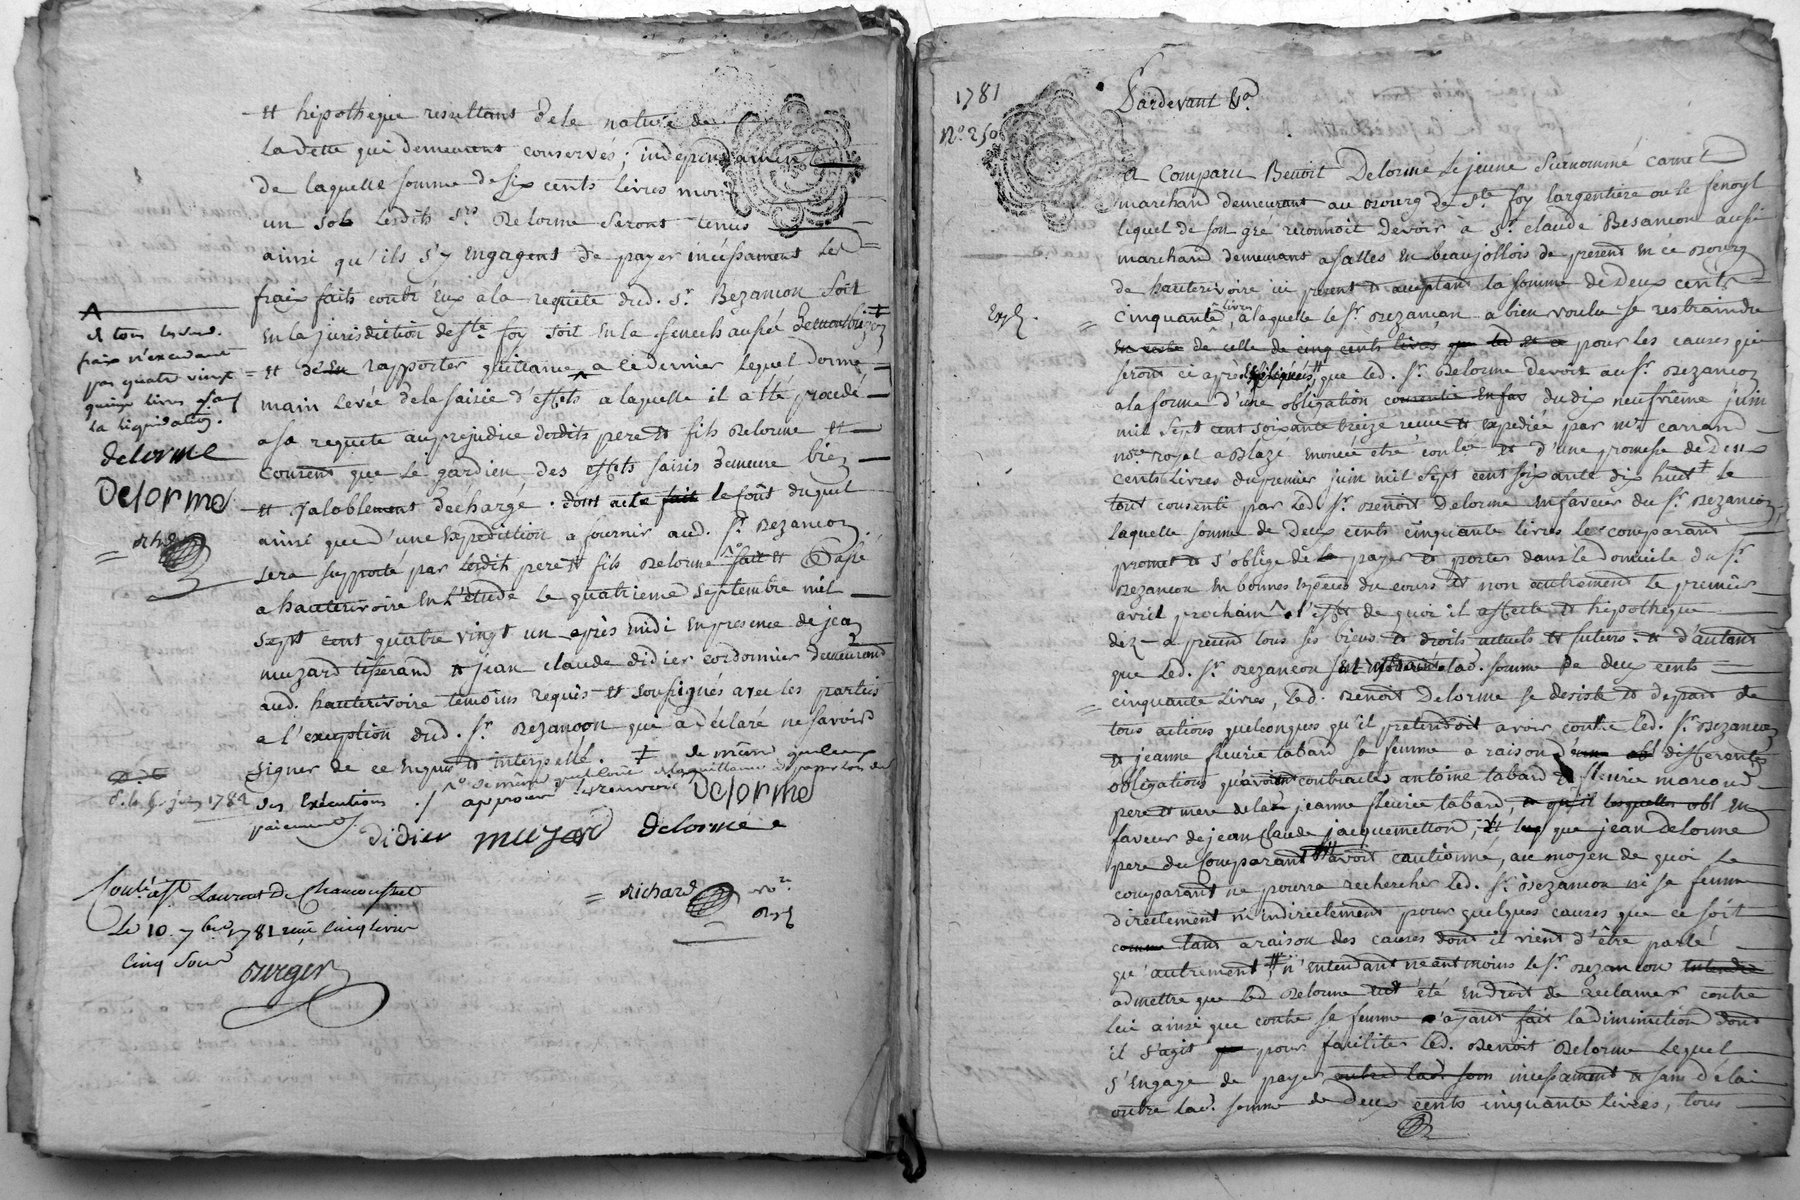 et hipotheque resultans de la nature de
la dette qui demeurent conservés ; independament
de laquelle somme de six cents livres moins
un sol lesdits Srs Delorme seront tenus
ainsi qu'ils s'y engagent de payer incéssament les
fraix faits contr'eux a la requête dud. Sr. Bezancon soit
en la jurisdiction de Ste foy soit en la senechaussée de montbrizon
et de en rapporter quittance a ce dernier lequel donne
main levée de la saisie d'effets a laquelle il a été procédé
a sa requête au prejudice desdits pere et fils Delorme et
consent que le gardien des effets saisis demeure bien
et valablement dechargé . dont acte fait le coût duquel
ainsi que d'une expedition a fournir aud. Sr. Bezancon
sera supporté par lesdits pere et fils Delorme fait et passé
a hauterivoire en l'étude le quatrieme septembre mil
sept cent quatre vingt un après midi en presence de jean
muzard tisserand et jean claude didier cordonnier demeurand
aud. hauterivoire temoins requis et soussignés avec les parties
a l'exception dud. Sr. Bezancon qui a déclaré ne savoir
signer de ce enquis et interpellé.
des exécutions
paiement
didier muzard delorme
Delorme
= Richard nore
et tous lesdits
fraix n'excedant
pas quatre vingt
quinze livres
la liquidation.
delorme
Delorme
juin 1782
Conté. a St Laurent de Chamousset
Le 10 7bre 1781 reçu cinq livres
cinq sous
Burger
1781
No. 250
Expé.
Pardevant &a.
A comparu Benoit Delorme le jeune surnommé carret
marchand demeurant au bourg de Ste foy largentiere ou le fenoyl
lequel de son gré reconnoit devoir à Sr. claude Besancon aussi
marchand demeurant a salles en beaujollois de présent en ce bourg
de hauterivoire ici present et acceptant la somme de deux cents
cinquante livres, a laquelle le Sr. Bezancon a bien voulu se restraindre
en reste de celle de cinq cents livres pour les causes qui
seront ci après expliquées, que led. Sr. Delorme devoit au Sr. Bezancon
a la forme d'une obligation du dix neufvième juin
mil sept cent soixante treize recue et expediée par me carrand
nore royal a Blazé et d'une promesse de deux
cents livres du premier juin mil sept cent soixante dix huit le
tout consenti par led. Sr. Benoit Delorme en faveur du Sr. Bezancon,
laquelle somme de deux cents cinquante livres le comparant
promet et s'oblige de payer et porter dans le domicile du Sr.
Bezancon en bonnes especes du cours et non autrement le premier
avril prochain a l'effet de quoi il affecte et hipotheque
dez a présent tous ses biens et droits actuels et futurs. et d'autant
que led. Sr. Bezancon lad. somme de deux cents
cinquante livres, led. Benoit Delorme se desiste et depart de
tous actions quelconques qu'il pretendoit avoir contre led. Sr. Bezancon
et jeanne fleurie tabard sa femme a raison differentes
obligations qu'avoient contractés antoine tabard et fleurie marcond
pere et mere de lad. jeanne fleurie tabard, en
faveur de jean claude jacquemetton, et que jean delorme
pere du comparant avoit cautionné, au moyen de quoi le
comparant ne pourra rechercher led. Sr. Bezancon ni sa femme
directement ni indirectement pour quelques causes que ce soit
comme tant a raison des causes dont il vient d'être parlé
qu'autrement, n'entendant neantmoins le Sr. Bezancon
admettre que led Delorme eut été en droit de reclamer contre
lui ainsi que contre sa femme n'ayant fait la diminution dont
il s'agit que pour faciliter led. Benoit Delorme lequel
s'engage de payer outre lad. som incessament et sans délai
outre lad. somme de deux cents cinquante livres, tous